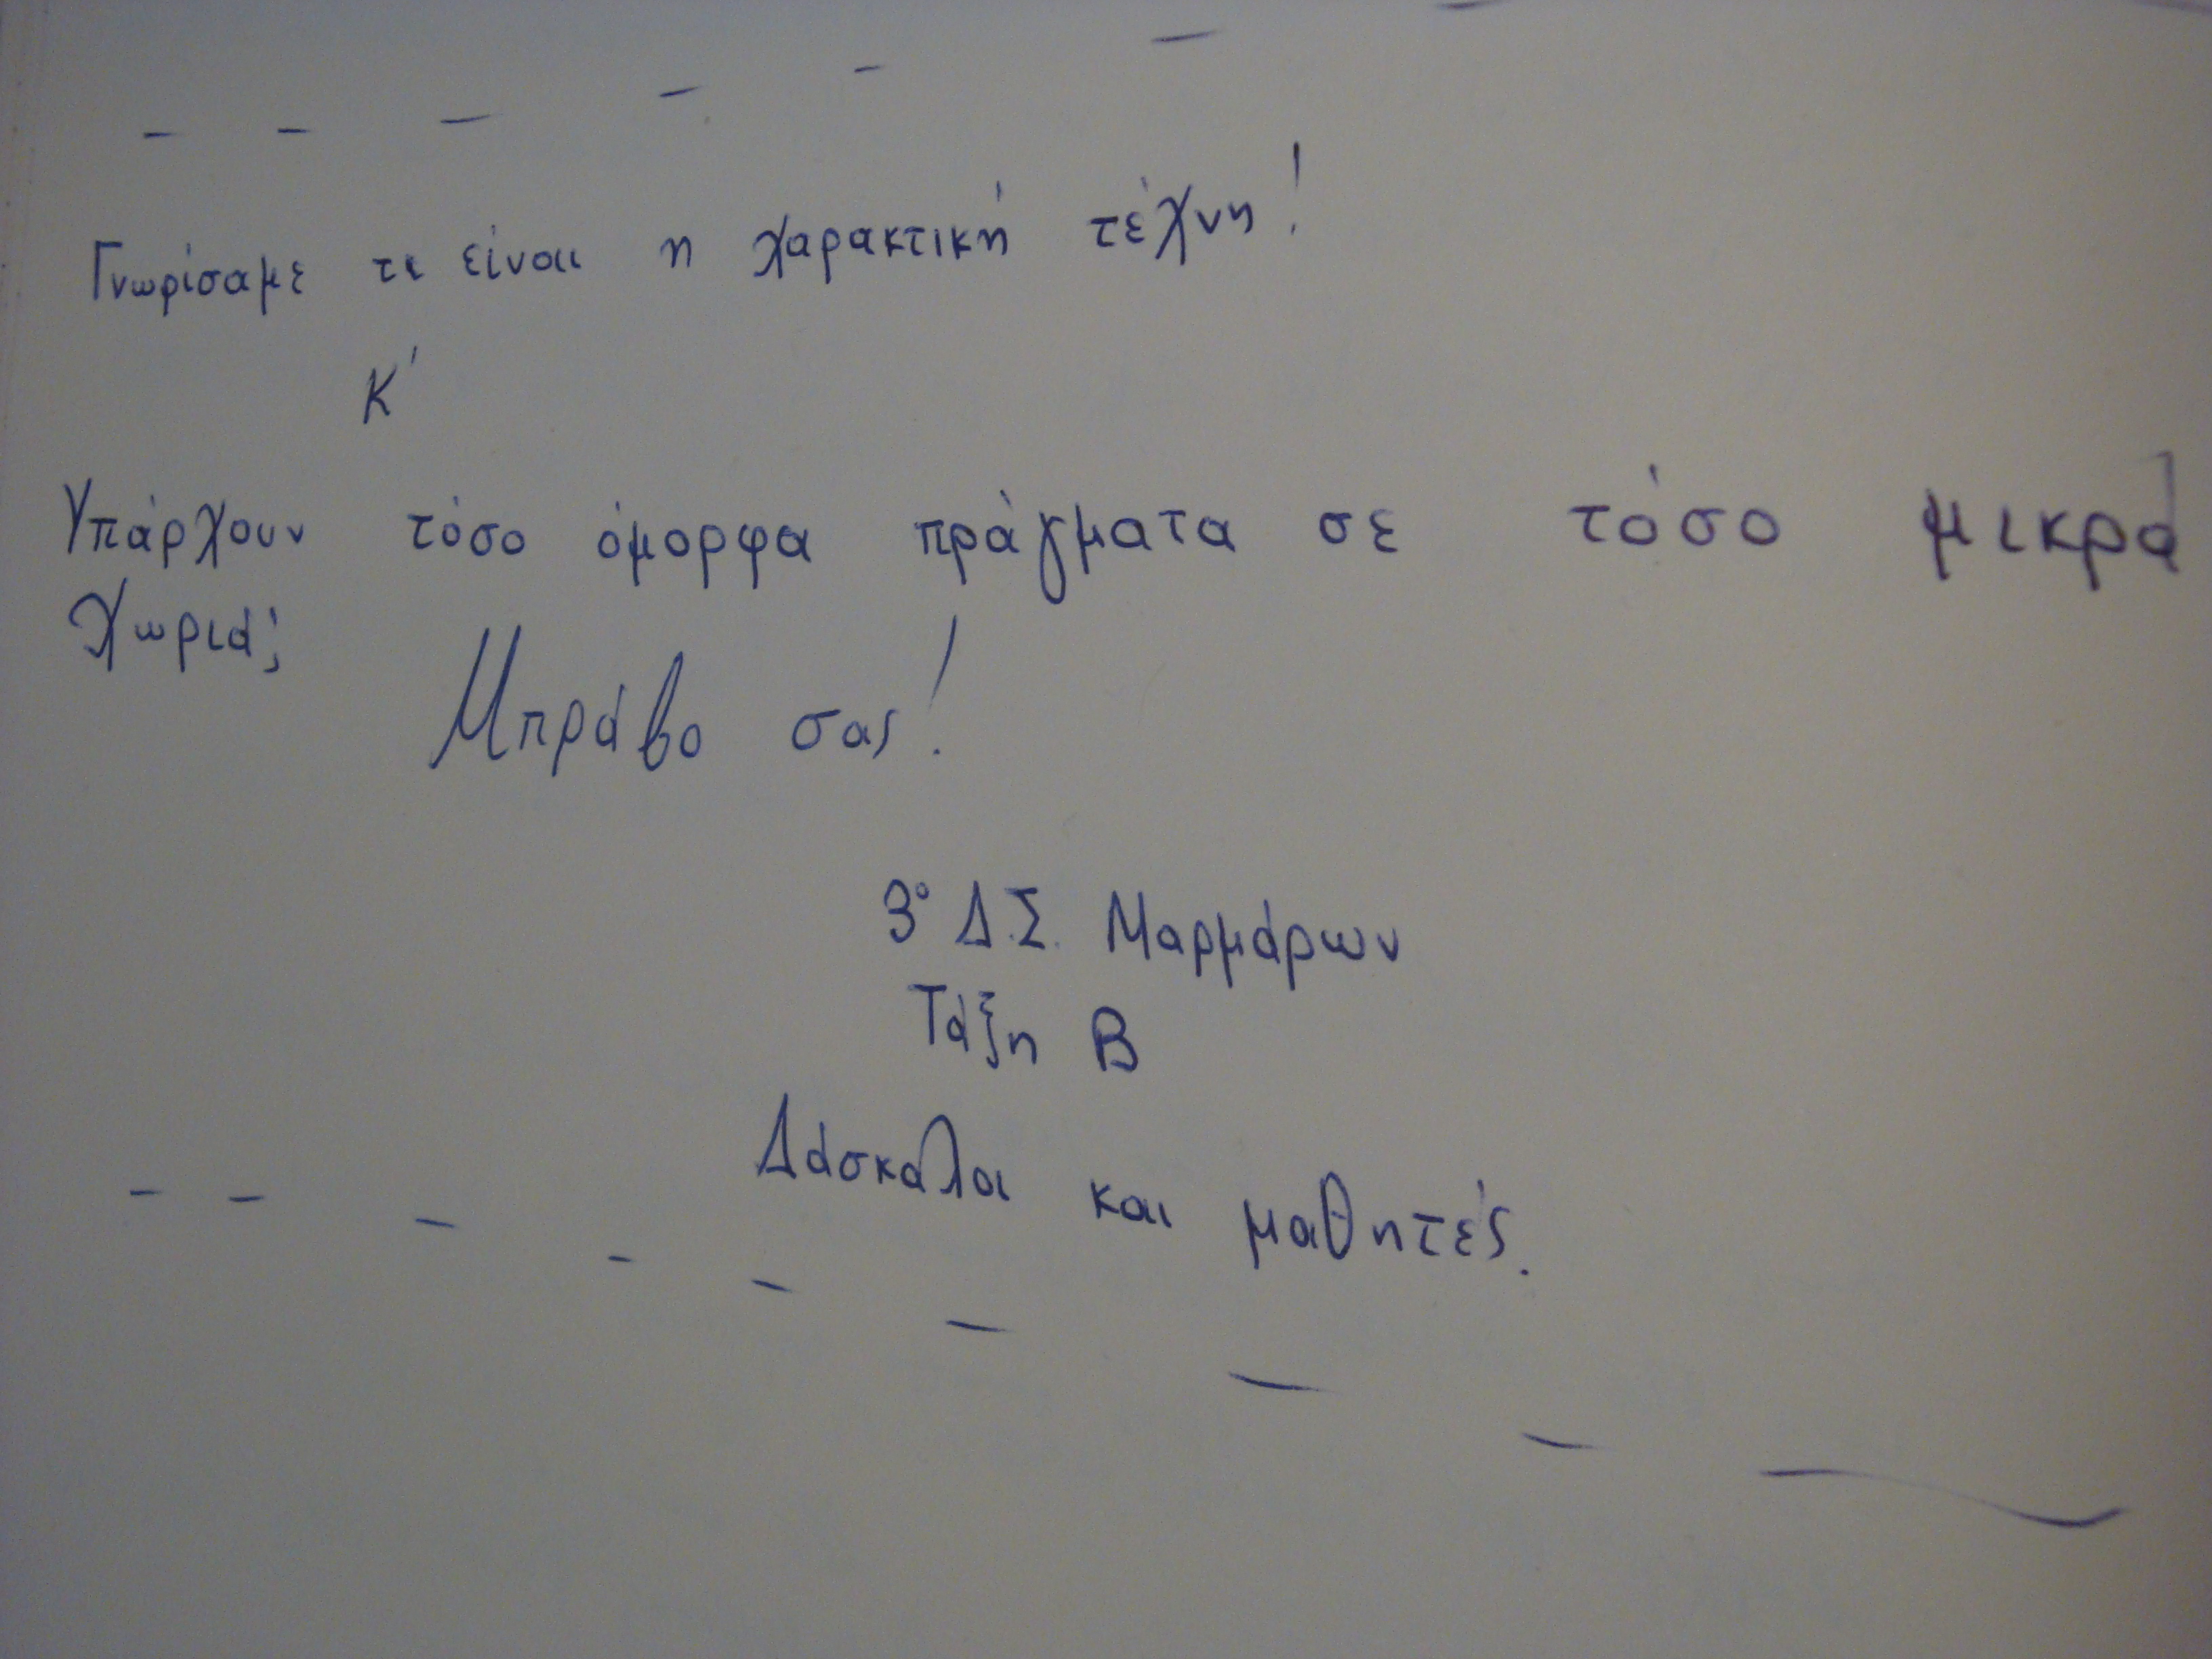 Γνωρίσαμε τι είναι η χαρακτική τέχνη!
Κ'
Υπάρχουν τόσο όμορφα πράγματα σε τόσο μικρά
χωριά;
Μπράβο σας!
3º Δ.Σ. Μαρμάρων
Τάξη Β
Δάσκαλοι και μαθητές.